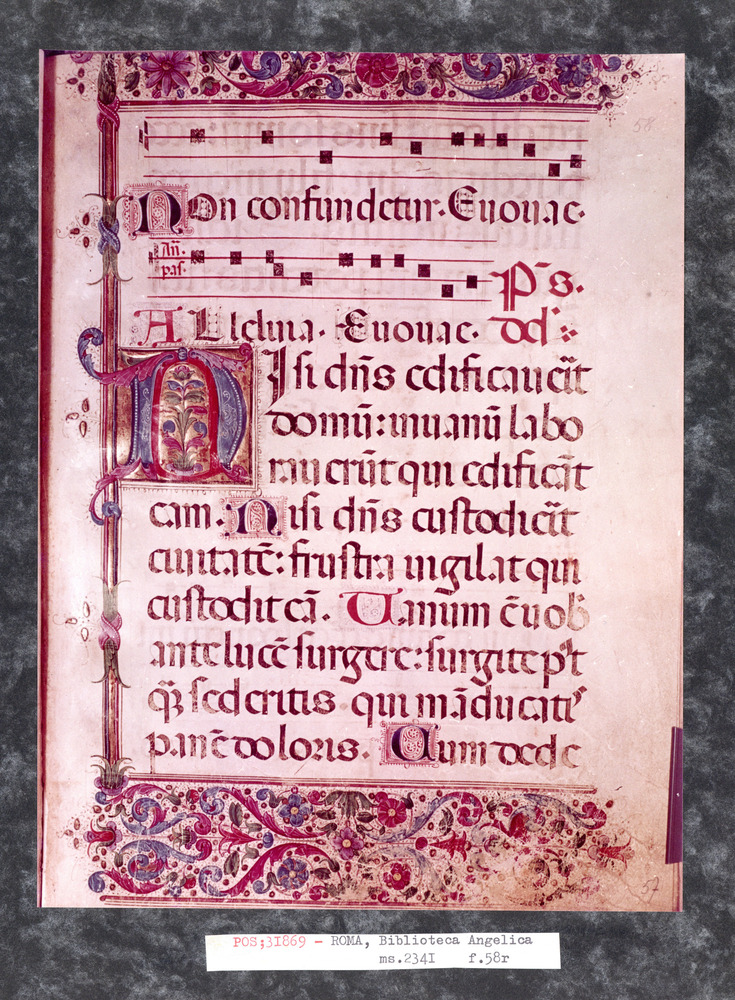 58
Non confundetur. Euouae.
Añ.
pas.
P̄s.
ALleluia. Euouae. dđ:
NIsi dñs edificaueāt
domū: inuanū labo
rauerūt qui edificāt
eam. Nisi dñs custodieāt
ciuitatē: frustra uigilat qui
custodit eā. Uanum ē uob̄
ante lucē surgere: surgite pꝰt
q̄ꝫ sederitis qui māducatꝭ
panē doloris. Cum dede
57
POS;31869 - ROMA, Biblioteca Angelica
ms.234I f.58r